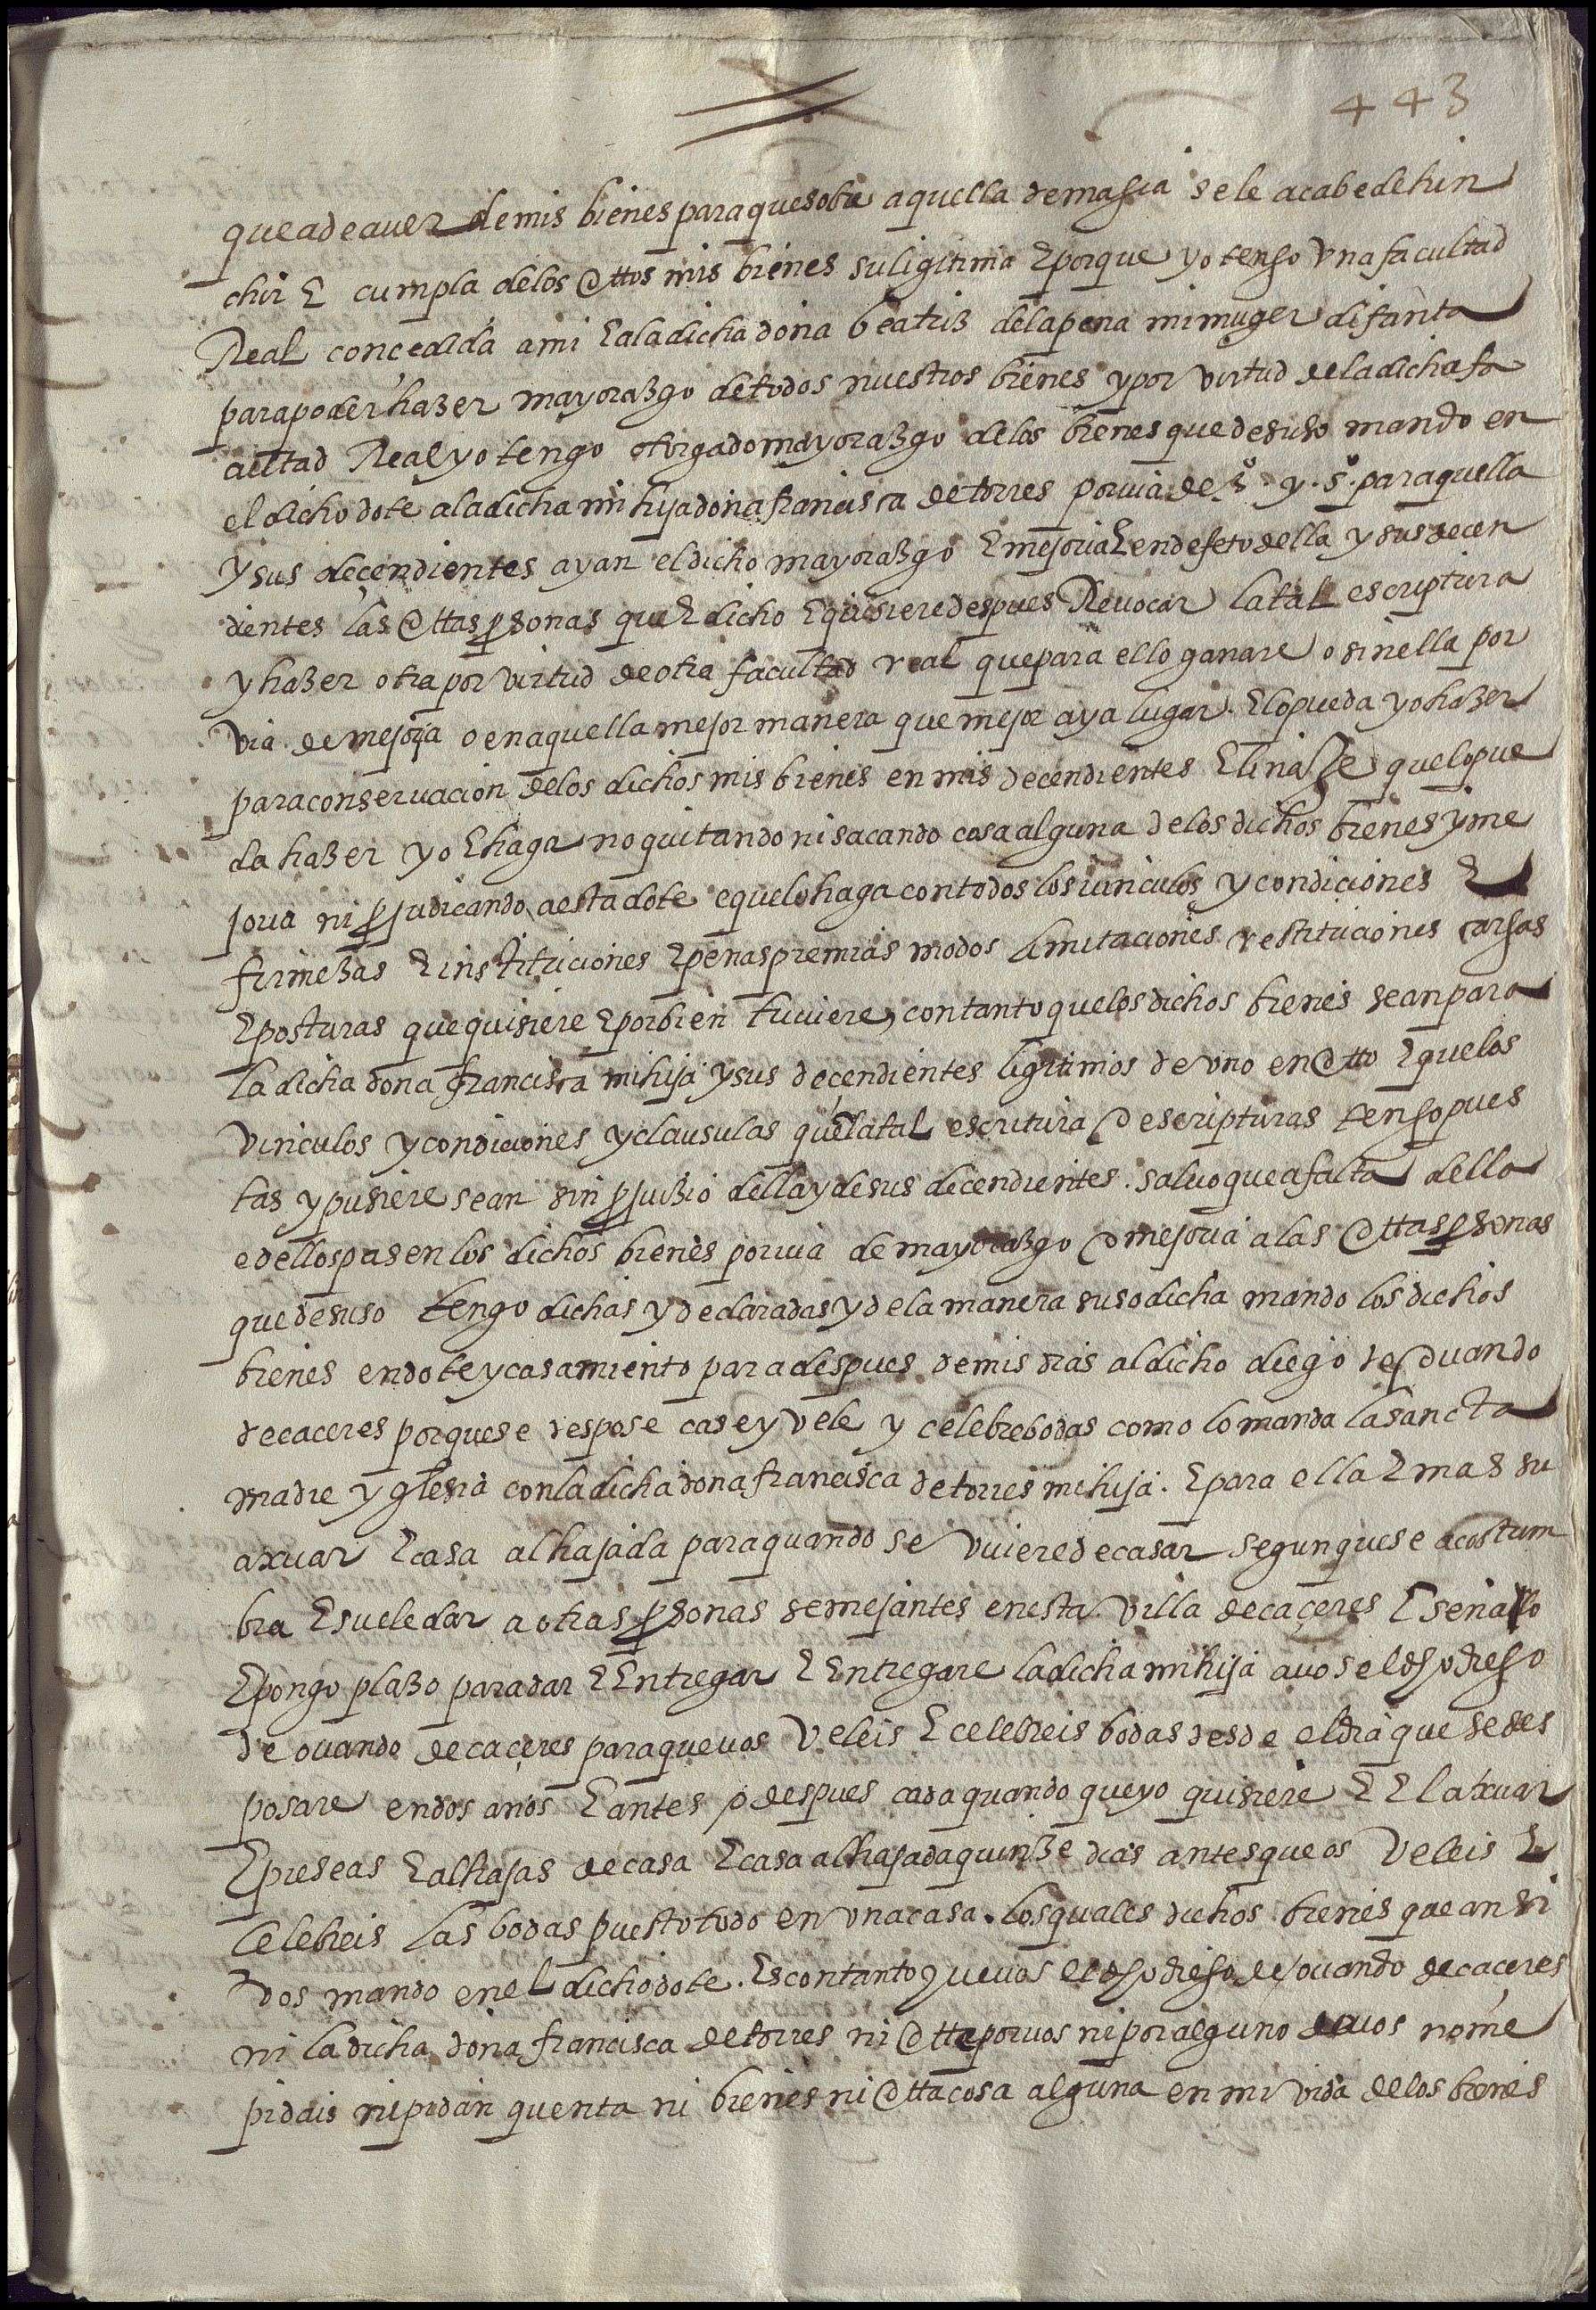 443
que a de aver de mis bienes para que sobre aquella demasia se le acabe de hin
chir E cumpla de los otros mis bienes su ligitima E porque yo tengo una facultad
Real concedida a mi E a la dicha doña beatriz de la peña mi muger difunta
para poder hazer mayorazgo de todos nuestros bienes y por virtud de la dicha fa
cultad Real yo tengo otorgado mayorazgo de los bienes que de suso mando en
el dicho dote a la dicha mi hija doña francisca de torres por via de y para quella
y sus deçendientes ayan el dicho mayorazgo E mejoria E en defeto della y sus decen
dientes las otras personas que E dicho E quisiere despues Revocar la tal escriptura
y hazer otra por virtud de otra facultad real que para ello ganare o sin ella por
via de mejoria o en aquella mejor manera que mejor aya lugar E lo pueda yo hazer
para conservacion de los dichos mis bienes en mis decendientes E linaje que lo pue
da hazer yo E haga no quitando ni sacando cosa alguna de los dichos bienes y me
joria ni perjudicando a esta dote e que lo haga con todos los vinculos y condiciones E
firmezas E instituciones E penas premias modos limitaciones restituciones cargas
E posturas que quisiere E por bien tuviere con tanto que los dichos bienes sean para
la dicha doña francisca mi hija y sus deçendientes ligitimos de uno en otro E que los
vinculos y condiciones y clausulas que la tal escritura o escripturas tengo pues
tas y pusiere sean sin perjuizio della y de sus decendientes salvo que a falta della
e dellos pasen los dichos bienes por via de mayorazgo o mejoria a las otras personas
que de suso tengo dichas y declaradas y de la manera suso dicha mando los dichos
bienes en dote y casamiento para despues de mis dias al dicho diego de ovando
de caceres porque se despose case y vele y celebre bodas como lo manda la sancta
madre yglesia con la dicha doña francisca de torres mi hija. E para ella E mas su
axuar E casa alhajada para quando se uviere de casar segun que se acostum
bra E suele dar a otras personas semejantes en esta villa de caçeres E señalo
E pongo plazo para dar E Entregar E Entregare la dicha mi hija a vos el dicho diego
de ovando de caçeres para que vos veleis E celebreis bodas desde el dia que se des
posare en dos años E antes o despues cada quando que yo quisiere E El axuar
E preseas E alhajas de casa E casa alhajada quinze dias antes que os veleis E
celebreis las bodas puesto todo en una casa. los quales dichos bienes que an si
dos mando en el dicho dote. Es con tanto que vos el dicho diego de ovando de caçeres
ni la dicha doña francisca de torres ni otre por vos ni por alguno de vos no me
pidais ni pidan quenta ni bienes ni otra cosa alguna en mi vida de los bienes